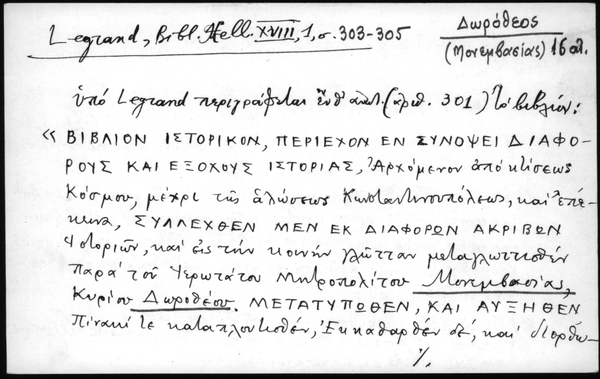 Legrand, Bibl. Hell. XVIII, 1, σ. 303-305
Δωρόθεος
(Μονεμβασίας) 16 αι.
ὑπό Legrand περιγράφεται (ἀριθ. 301) τὸ βιβλίον:
« ΒΙΒΛΙΟΝ ΙΣΤΟΡΙΚΟΝ, ΠΕΡΙΕΧΟΝ ΕΝ ΣΥΝΟΨΕΙ ΔΙΑΦΟ-
ΡΟΥΣ ΚΑΙ ΕΞΟΧΟΥΣ ΙΣΤΟΡΙΑΣ, Ἀρχόμενον ἀπό κτίσεως
Κόσμου, μέχρι τῆς ἁλώσεως Κωνσταντινουπόλεως, καὶ ἐπέ-
κεινα, ΣΥΛΛΕΧΘΕΝ ΜΕΝ ΕΚ ΔΙΑΦΟΡΩΝ ΑΚΡΙΒΩΝ
Ἱστοριῶν, καὶ εἰς τὴν κοινὴν γλῶτταν μεταγλωττισθέν
παρὰ τοῦ Ἱερωτάτου Μητροπολίτου Μονεμβασίας,
Κυρίου Δωροθέου. ΜΕΤΑΤΥΠΩΘΕΝ, ΚΑΙ ΑΥΞΗΘΕΝ
Πίνακί τε καταπλουτισθέν, Ἐκκαθαρθέν δέ, καὶ διορθω-
./.